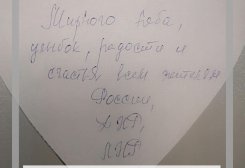 Мирного неба,
улыбок, радости и
счастья всем жителям
России,
ДНР,
ЛНР